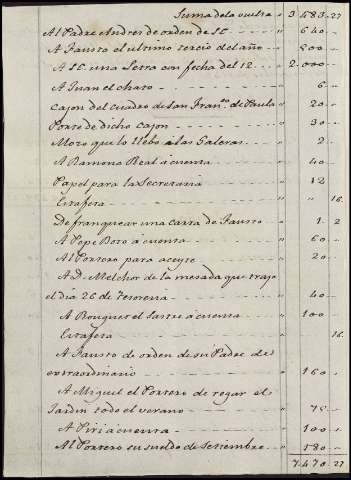 Suma de la vuelta " 3.483.. 27
Al Padre Andres de orden de SE " 640
A Fausto el ultimo tercio del año " 200
A SE una Letra con fecha del 12 " 2.000
A Juan el chato " 6
Cajon del cuadro de San Fran.co de Paula " 20
Porte de dicho cajon " 30
Mozo que lo llebó a las Galeras " 2
A Ramona Real a cuenta " 40
Papel para la Secretaria " 12
Estafeta " " 16
De franquear una carta de Fausto " 1.. 2
A Pepe Boro a cuenta " 60
Al Portero para aceyte " 20
A D. Melchor de la mesada que trajo
el dia 26 de tesoreria " 40
A Bouquet el Sastre a cuenta " 100
Estafeta 16
A Fausto de orden de su Padre de
extraordinario " 160
A Miguel el Portero de regar el
Jardin todo el verano " 75
A Piri a cuenta " 100
Al Portero su sueldo de Setiembre " 580
7.470.. 27